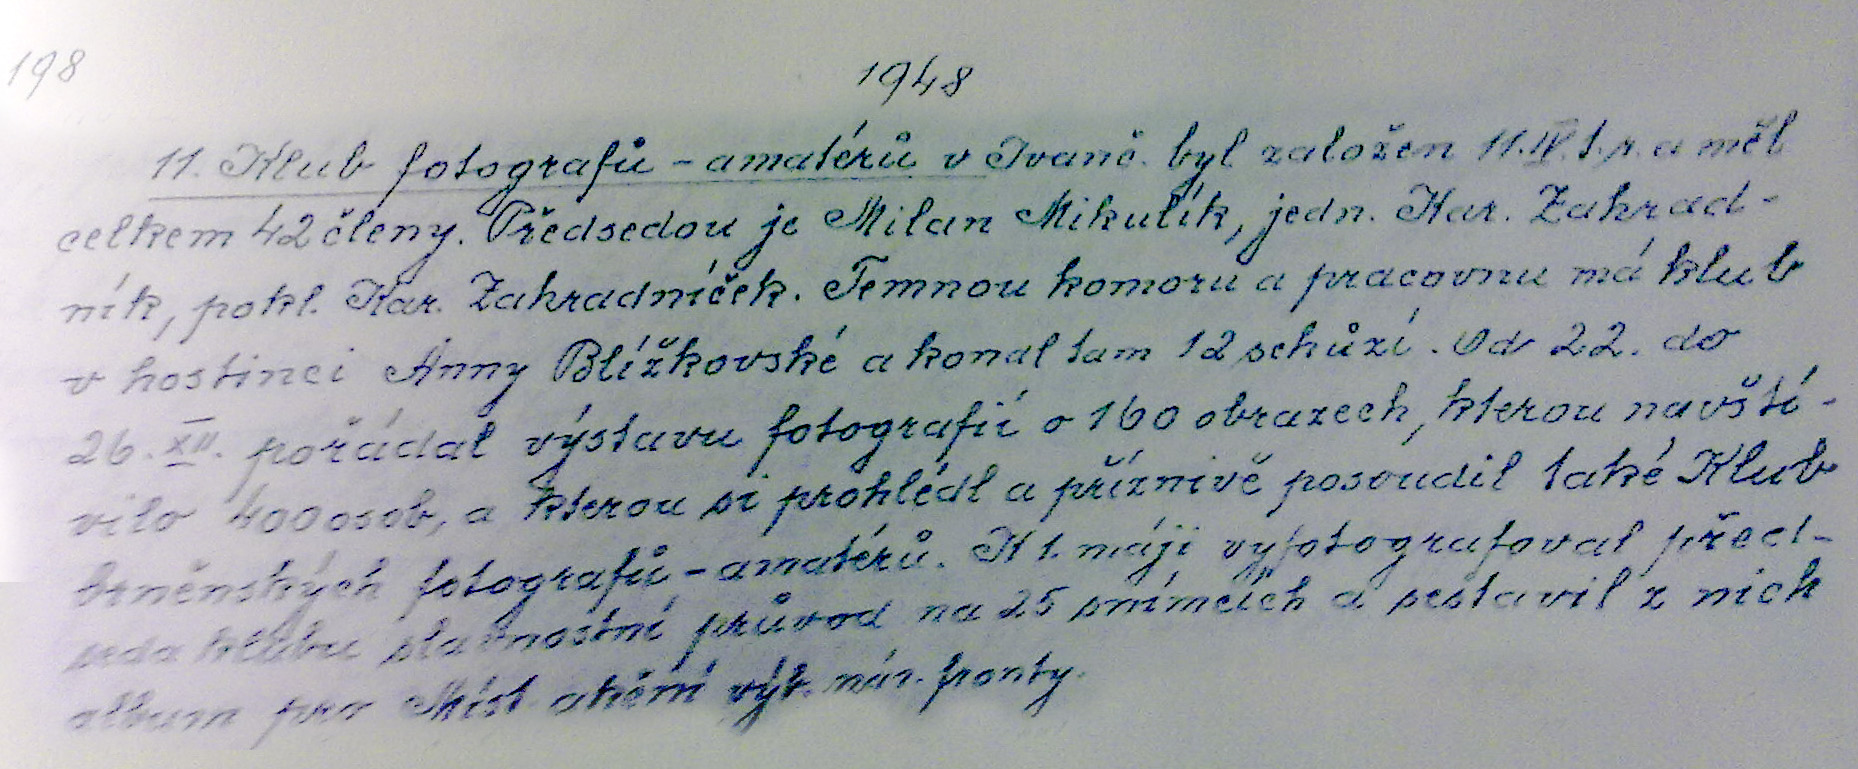 198
1948
11. Klub fotografů - amatérů v Ivanč. byl založen 11.IV. t.r. a měl
celkem 42 členy. Předsedou je Milan Mikulík, jedn. Kar. Zahrad-
ník, pokl. Kar. Zahradníček. Temnou komoru a pracovnu má klub
v hostinci Anny Blížkovské a konal tam 12 schůzí. Od 22. do
26. XII. pořádal výstavu fotografií o 160 obrazech, kterou navští-
vilo 400 osob, a kterou si prohlédl a příznivě posoudil také Klub
brněnských fotografů - amatérů. K 1. máji vyfotografoval před-
seda klubu slavnostní průvod na 25 snímcích a sestavil z nich
album pro Míst. akční výb. nár. fronty.